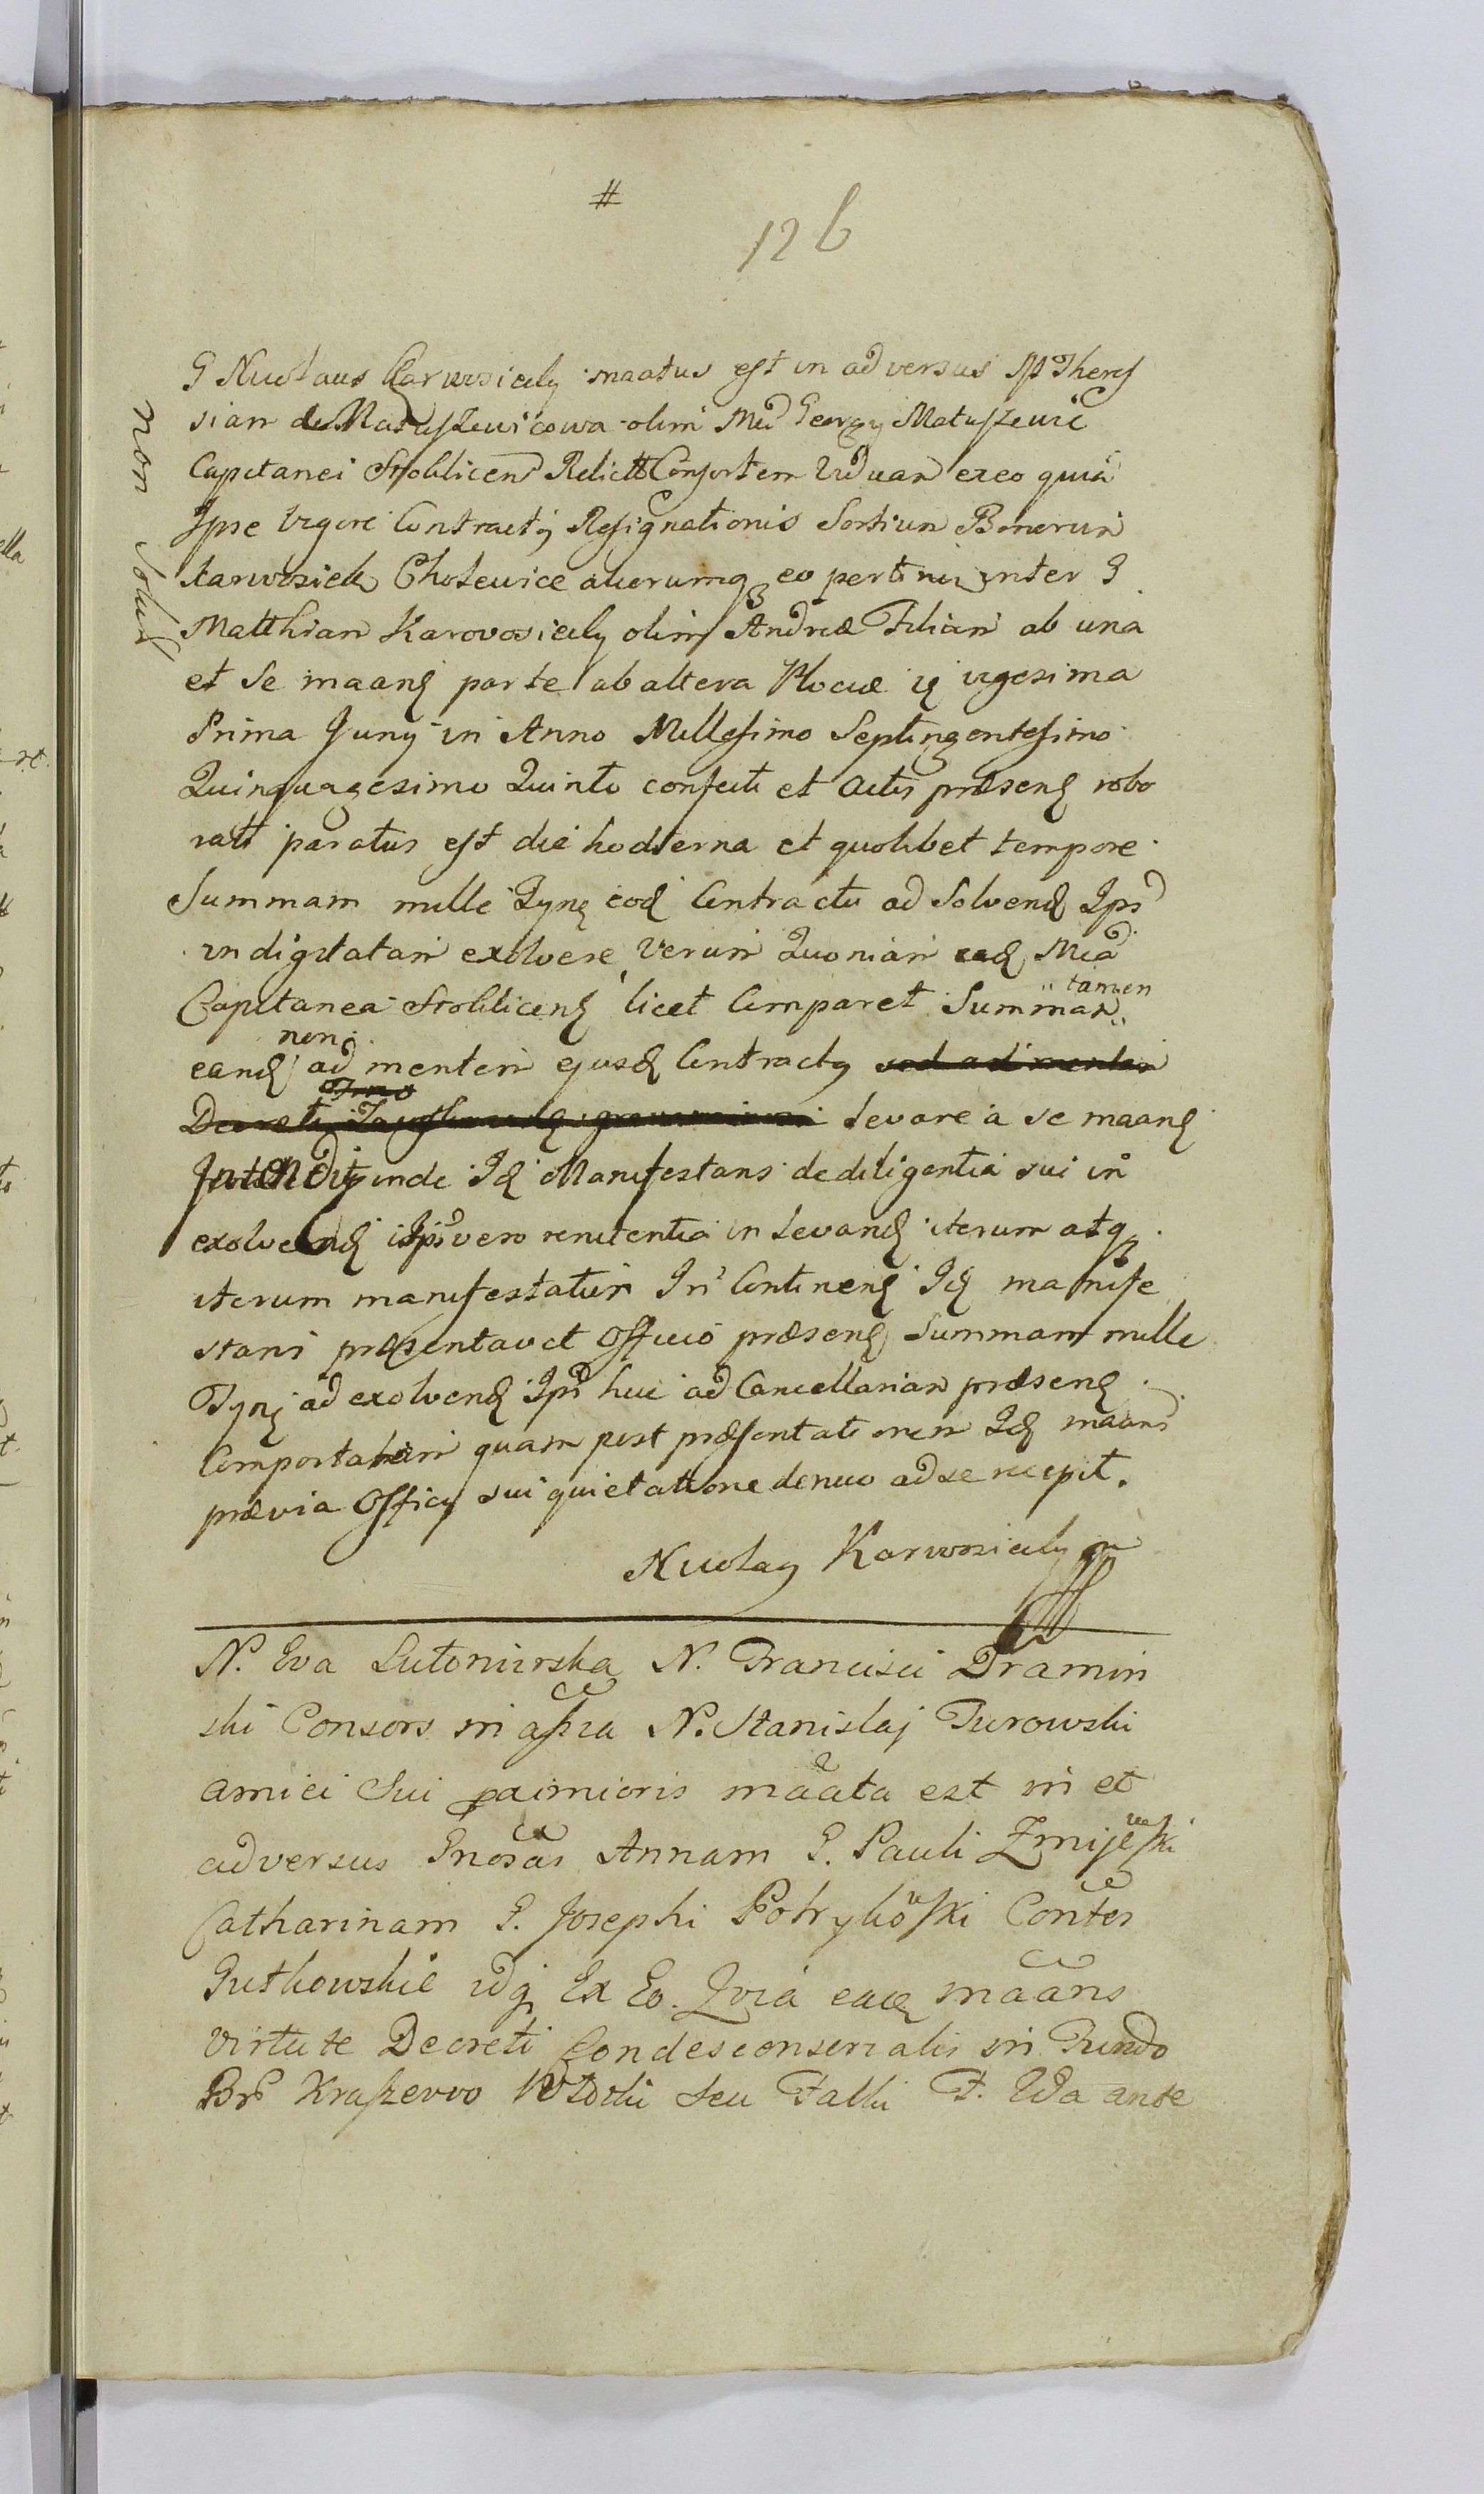 #
126
G Nicolaus Karwosiecky maatus est in adversus M There
siam de Matuszewicowa olim Mci Georgy Matuszewic
Capitanei Stoklicens Relictt Consortem Viduam ex eo quia
Ipse Vigore Contractus Resignationis Sortium Bonorum
Karwosieck Cholewice aliorumq eo pertinen inter G
Matthiam Karowosiecky olim Andreæ Filium ab una
et Se maang parte ab altera Plociæ vigesima
Prima Juny in Anno Millesimo Septingentesimo
Quinquagesimo Quinto confecti et Actis præseng robo
ratt paratus est die hodierna et quolibet tempore
Summam mille Tyng eod Contractu ad Solvend Ipsi
indigitatam exolvere, Verum Quoniam ead Mca
Capitanea Stoklicens licet Comparet Summam tamen
eand non ad mentem ejusd Contractus sed ad mentem
Decreti levare a se maang
Intendit inde Id Manifestans de diligentia sui in
exolvend Ipsi vero renitentia in levand iterum atq
iterum manifestatur In Continenti Id manife
stans præsentavit Officio præseng Summam mille
Tyng ad exolvend Ipsi huc ad Cancellariam præseng
Comportatam quam post præsentationem Id maans
prævia Officy sui quietatione denuo ad se recepit.
Nicolaus Karwosiecky m
non solut
N. Eva Lutomirska N. Francisci Dramin
ski Consors in assa N. Stanislaj Turowski
amici Sui proximioris maata est in et
adversus Gnosas Annam G. Pauli Zmijewski
Catharinam G. Josephi Potrykowski Contes
Gutkowskie idq Ex Eo. Qvia eadem maans
virtute Decreti Condescensorialis in Fundo
Brm Kraszewo Wtoski seu Falki F. IVa ante